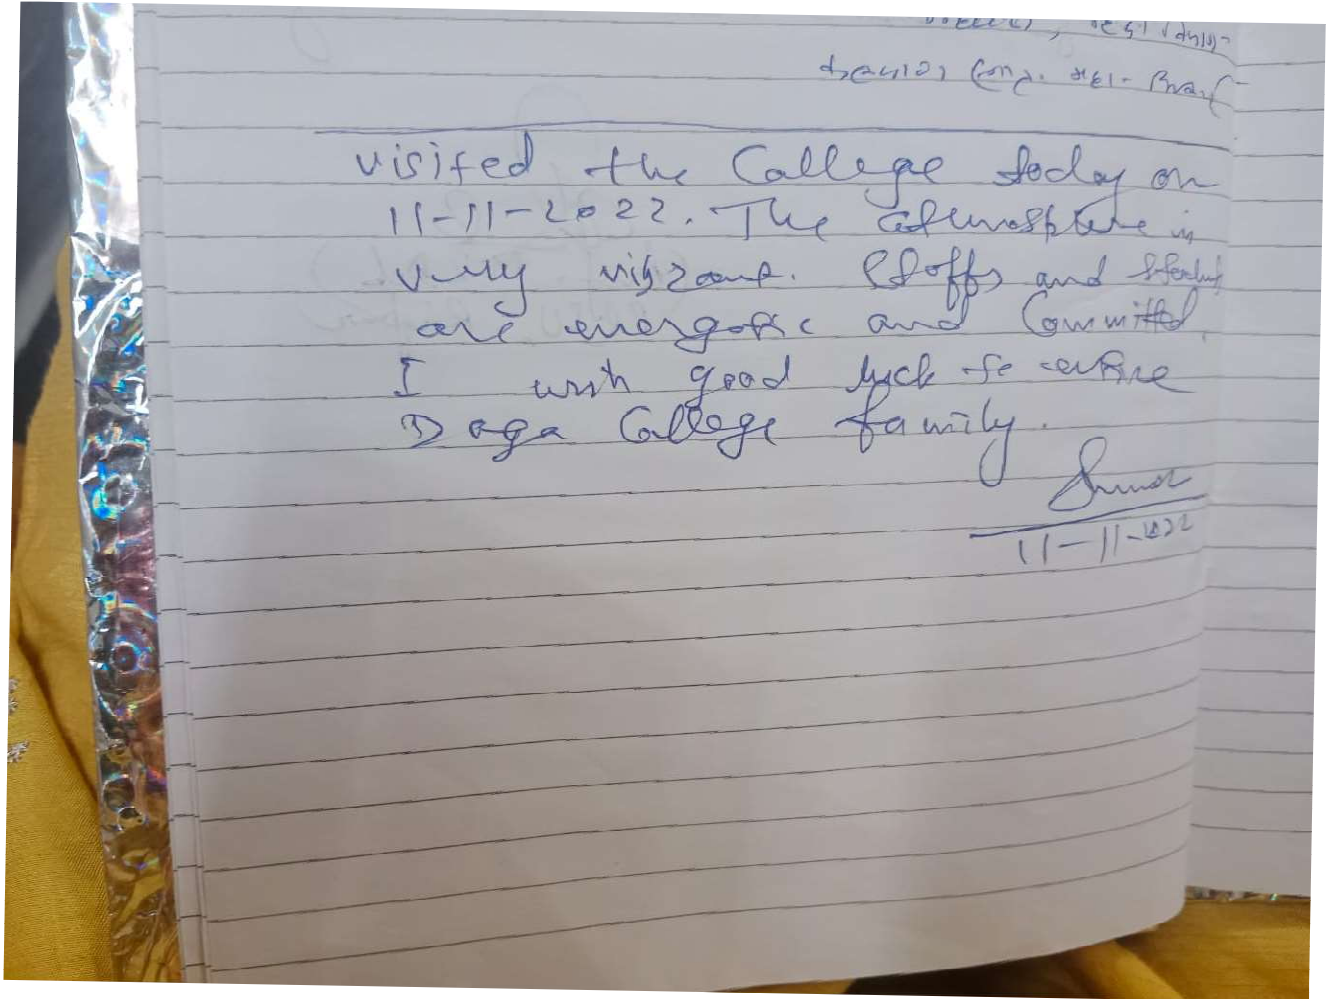 visited the College today on
11-11-2022. The atmosphere is
very vibrant. Staffs and
are energetic and Committed.
I wish good luck to entire
Daga College family.
11-11-2022